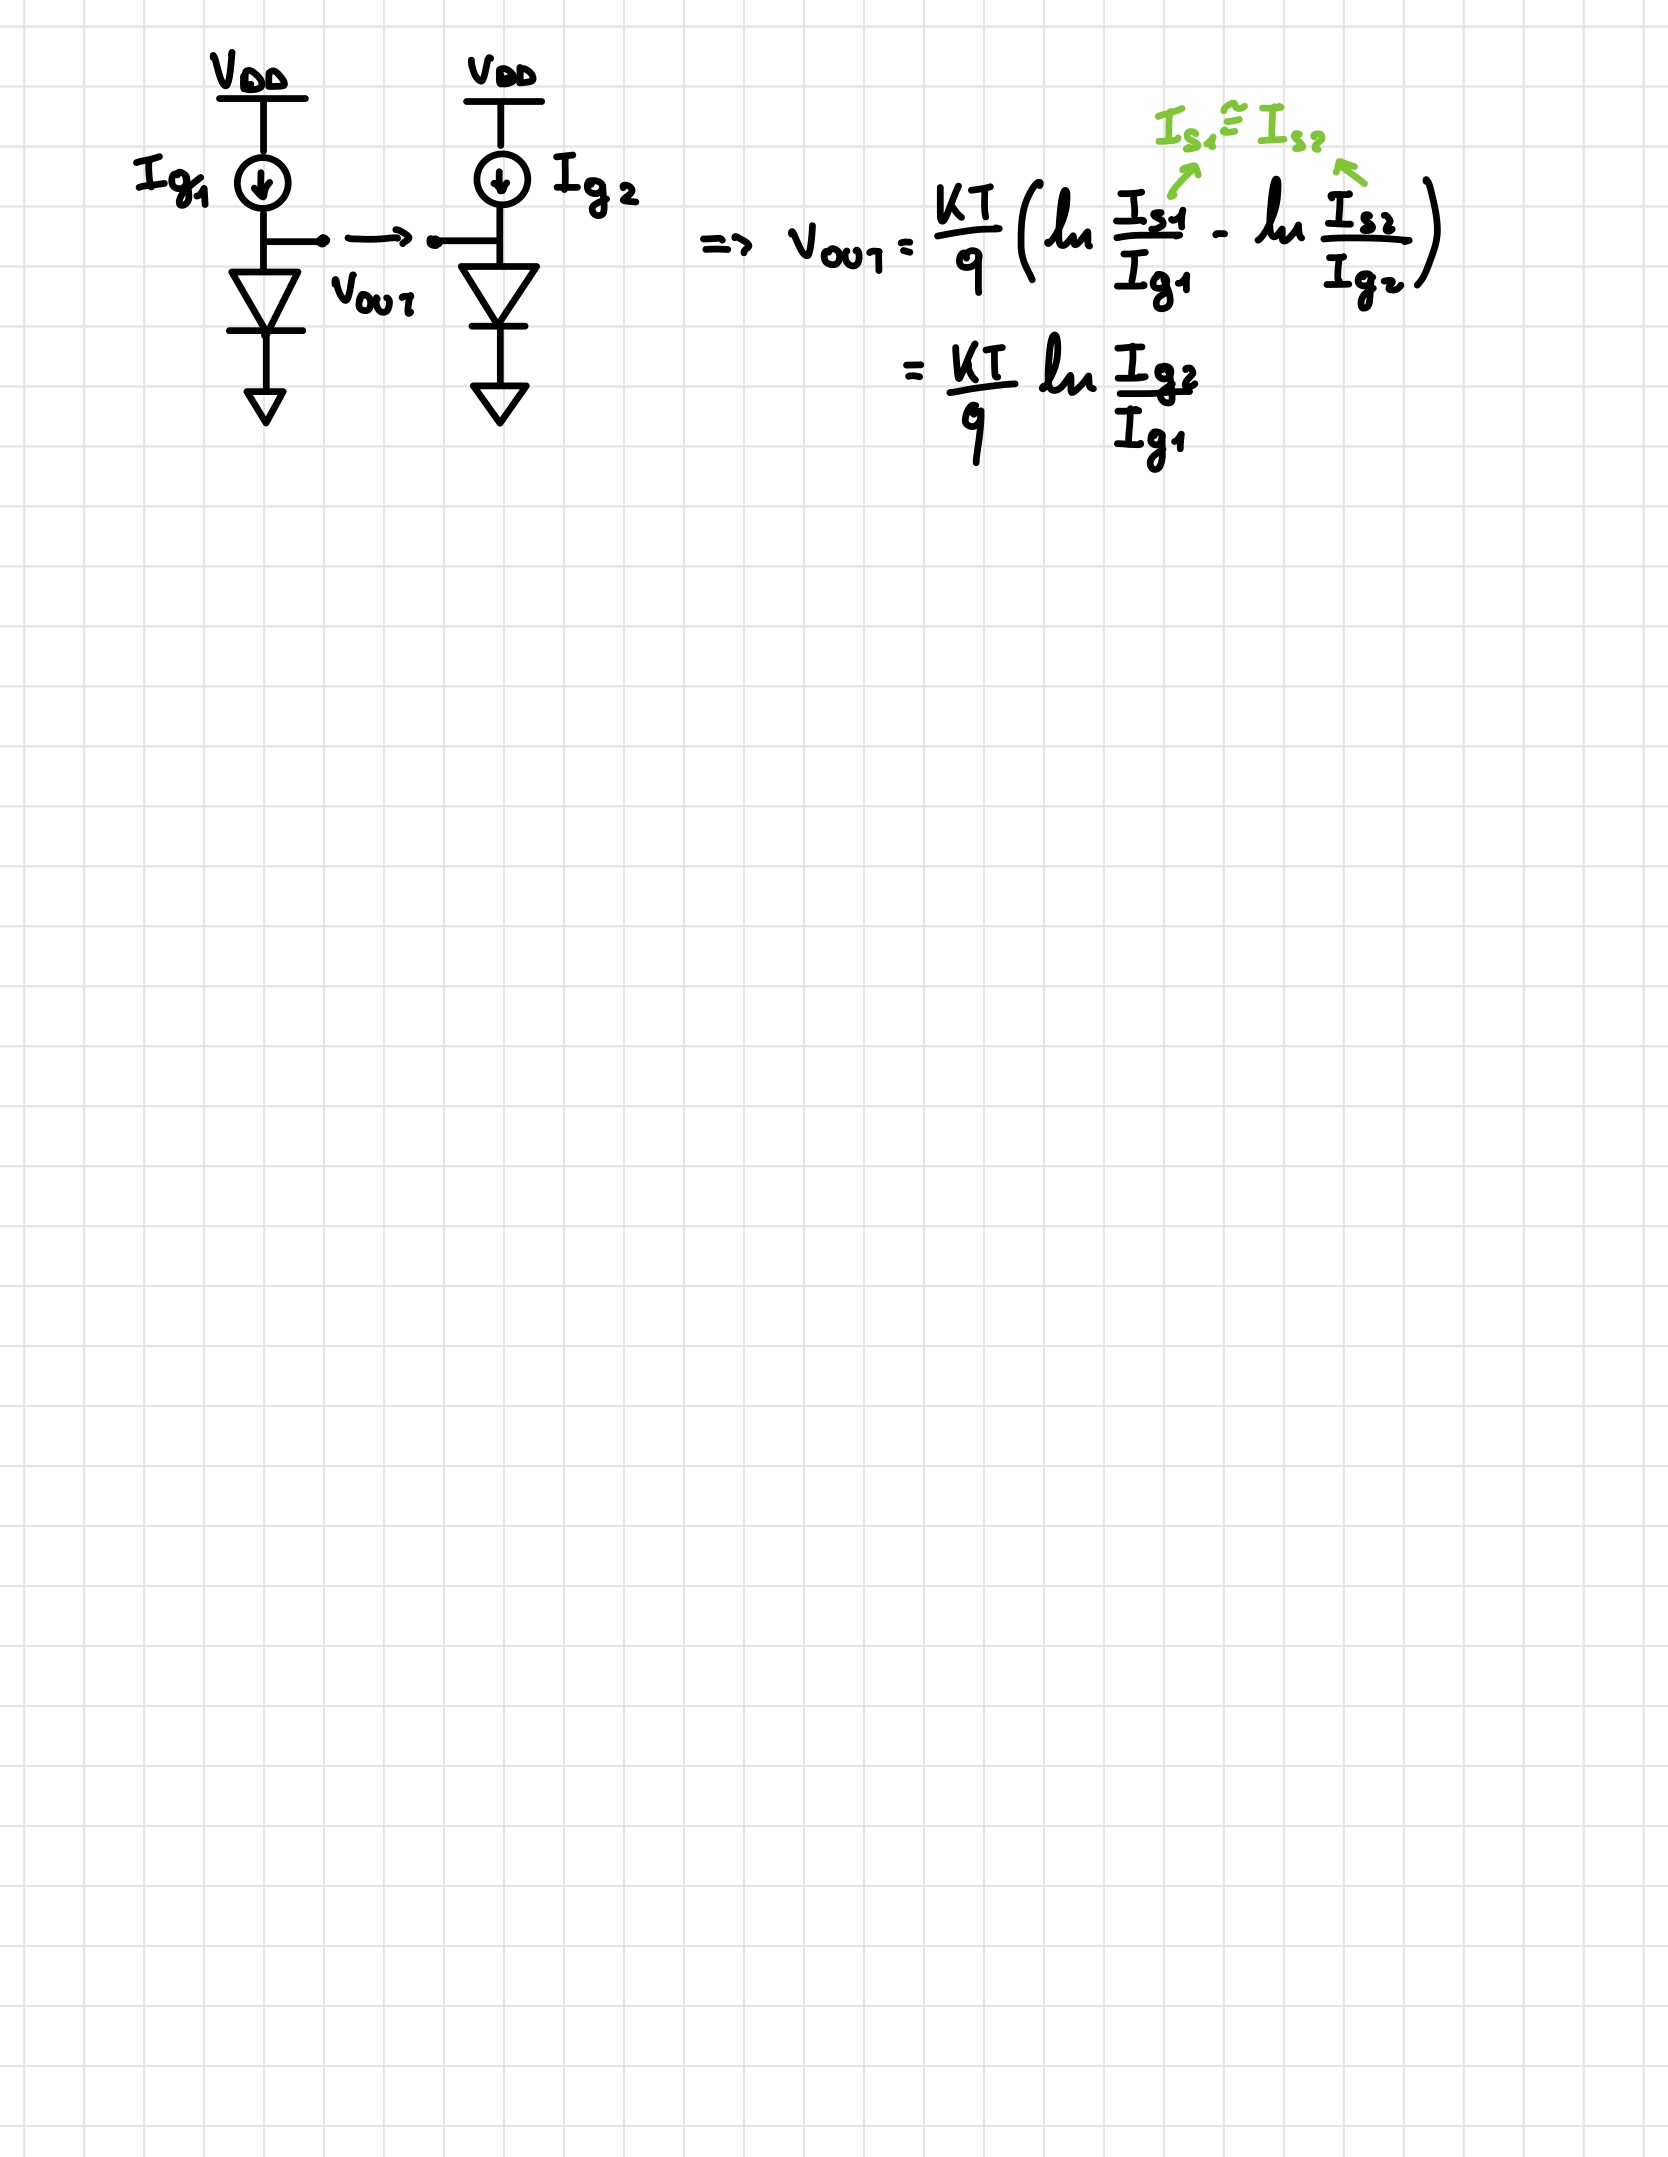 V_DD V_DD
I_g1 I_g2
V_OUT
I_s1 ≅ I_s2
=> V_OUT = KT/q (ln I_s1/I_g1 - ln I_s2/I_g2)
= KT/q ln I_g2/I_g1